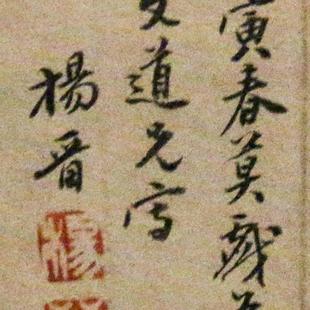 寅春莫戲為
道兄寫
楊晉